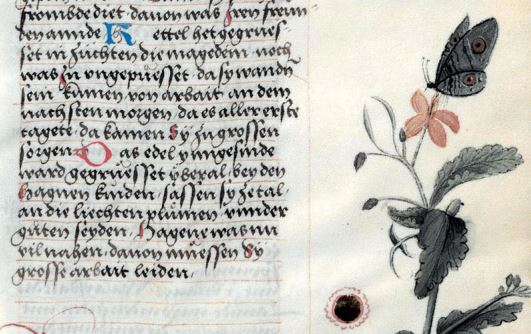 frombde diet. dauon was Iren freun
den annde Hettel het gegrues
set in züchten die magedein. noch
was Ir vngepuesset. da sy wandn
sein kumen von arbait an dem
nachsten morgen da es aller erste
tagete. da kamen Sy zu grossen
sorgen. Das edel yngesinde
ward gegruesset yberal. bey den
Hagnen kinden. sassen sy ze tal.
an die liechten pluemen. vnnder
güten seyden. Hagene was nu
vil nahen. dauon muessen Sy
grosse arbait leiden.